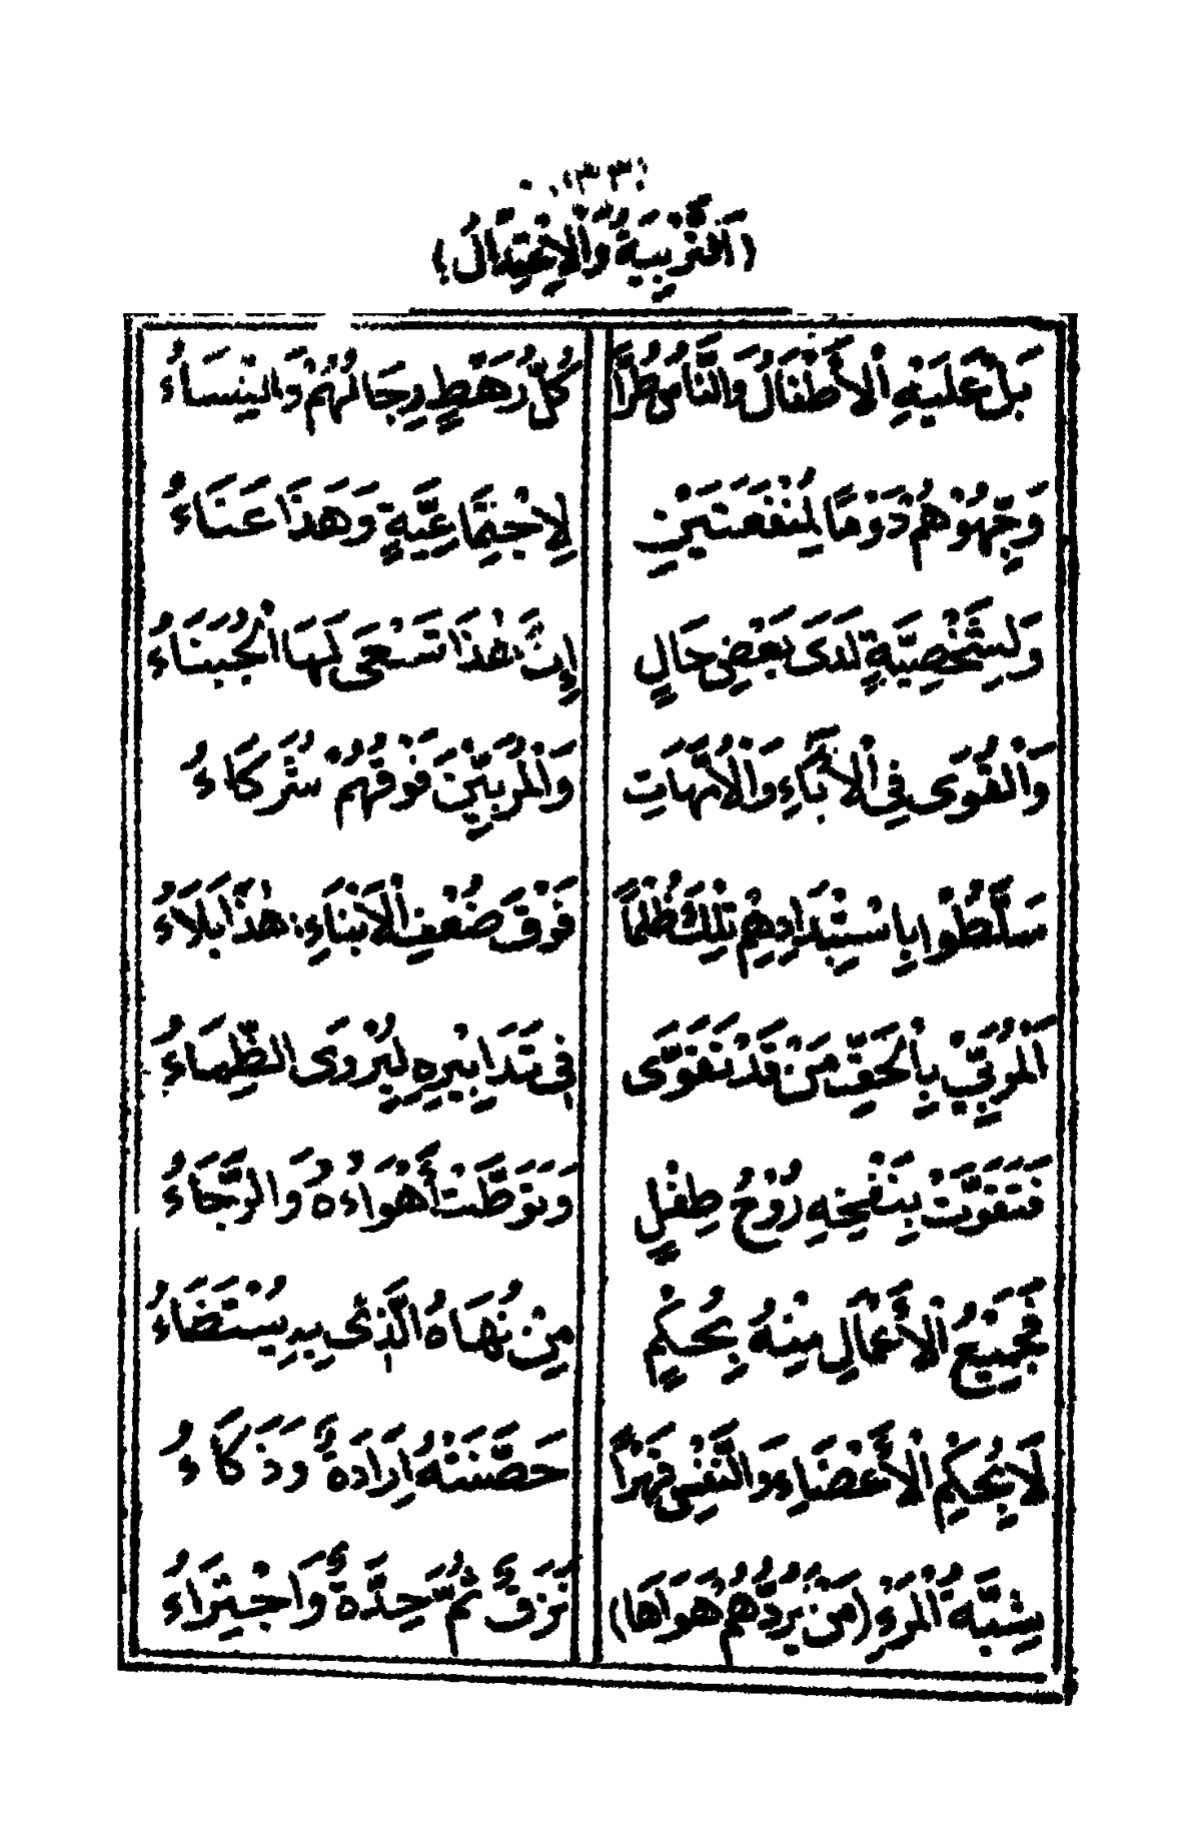 (٣٣)
(اَلتَّرْبِيَةُ وَالْاِعْتِدَالُ)
بَلْ عَلَيْهِ الْأَطْفَالُ وَالنَّاسُ طُرًّا كُلُّ رَهْطٍ رِجَالُهُمْ وَالنِّسَاءُ
وَجِّهُوْهُمْ دَوْمًا لِمَنْفَعَتَيْنِ لِاجْتِمَاعِيَّةٍ وَهَذَا عَنَاءُ
وَلِشَخْصِيَّةٍ لَدَى بَعْضِ حَالٍ إِنَّ هٰذَا تَسْعَى لَهَا الْجُبَنَاءُ
وَالْقُوَى فِى الْآبَاءِ وَالْأُمَّهَاتِ وَالْمُرَبِّيْنَ فَوْقَهُمْ شُرَكَاءُ
سَلَّطُوْا بِاسْتِبْدَادِهِمْ تِلْكَ ظُلْمًا فَوْقَ ضُعْفِ الْأَبْنَاءِ هٰذَا بَلَاءُ
اَلْمُرَبِّيْ بِالْحَقِّ مَنْ قَدْ تَقَوَّى فِى تَدَابِيْرِهِ لِيُرْوَى الظِّمَاءُ
فَتَقَوَّتْ بِنَفْخِهِ رُوْحُ طِفْلٍ وَتَوَطَّتْ أَهْوَاءهُ وَالرَّجَاءُ
فَجَمِيْعُ الْأَعْمَالِ مِنْهُ بِحُكْمٍ مِنْ نُهَاهُ الَّذِى بِهِ يُسْتَضَاءُ
لَا بِحُكْمِ الْأَعْضَاءِ وَالنَّفْسِ قَهْرًا حَصَّنَتْهُ اِرَادَةٌ وَذَكَاءُ
شِبْهَةُ الْمَرْءِ (مَنْ يَرُدُّهُمْ هَوَاهَا) نَزَقٌ ثُمَّ حِدَّةٌ وَاجْتِرَاءُ